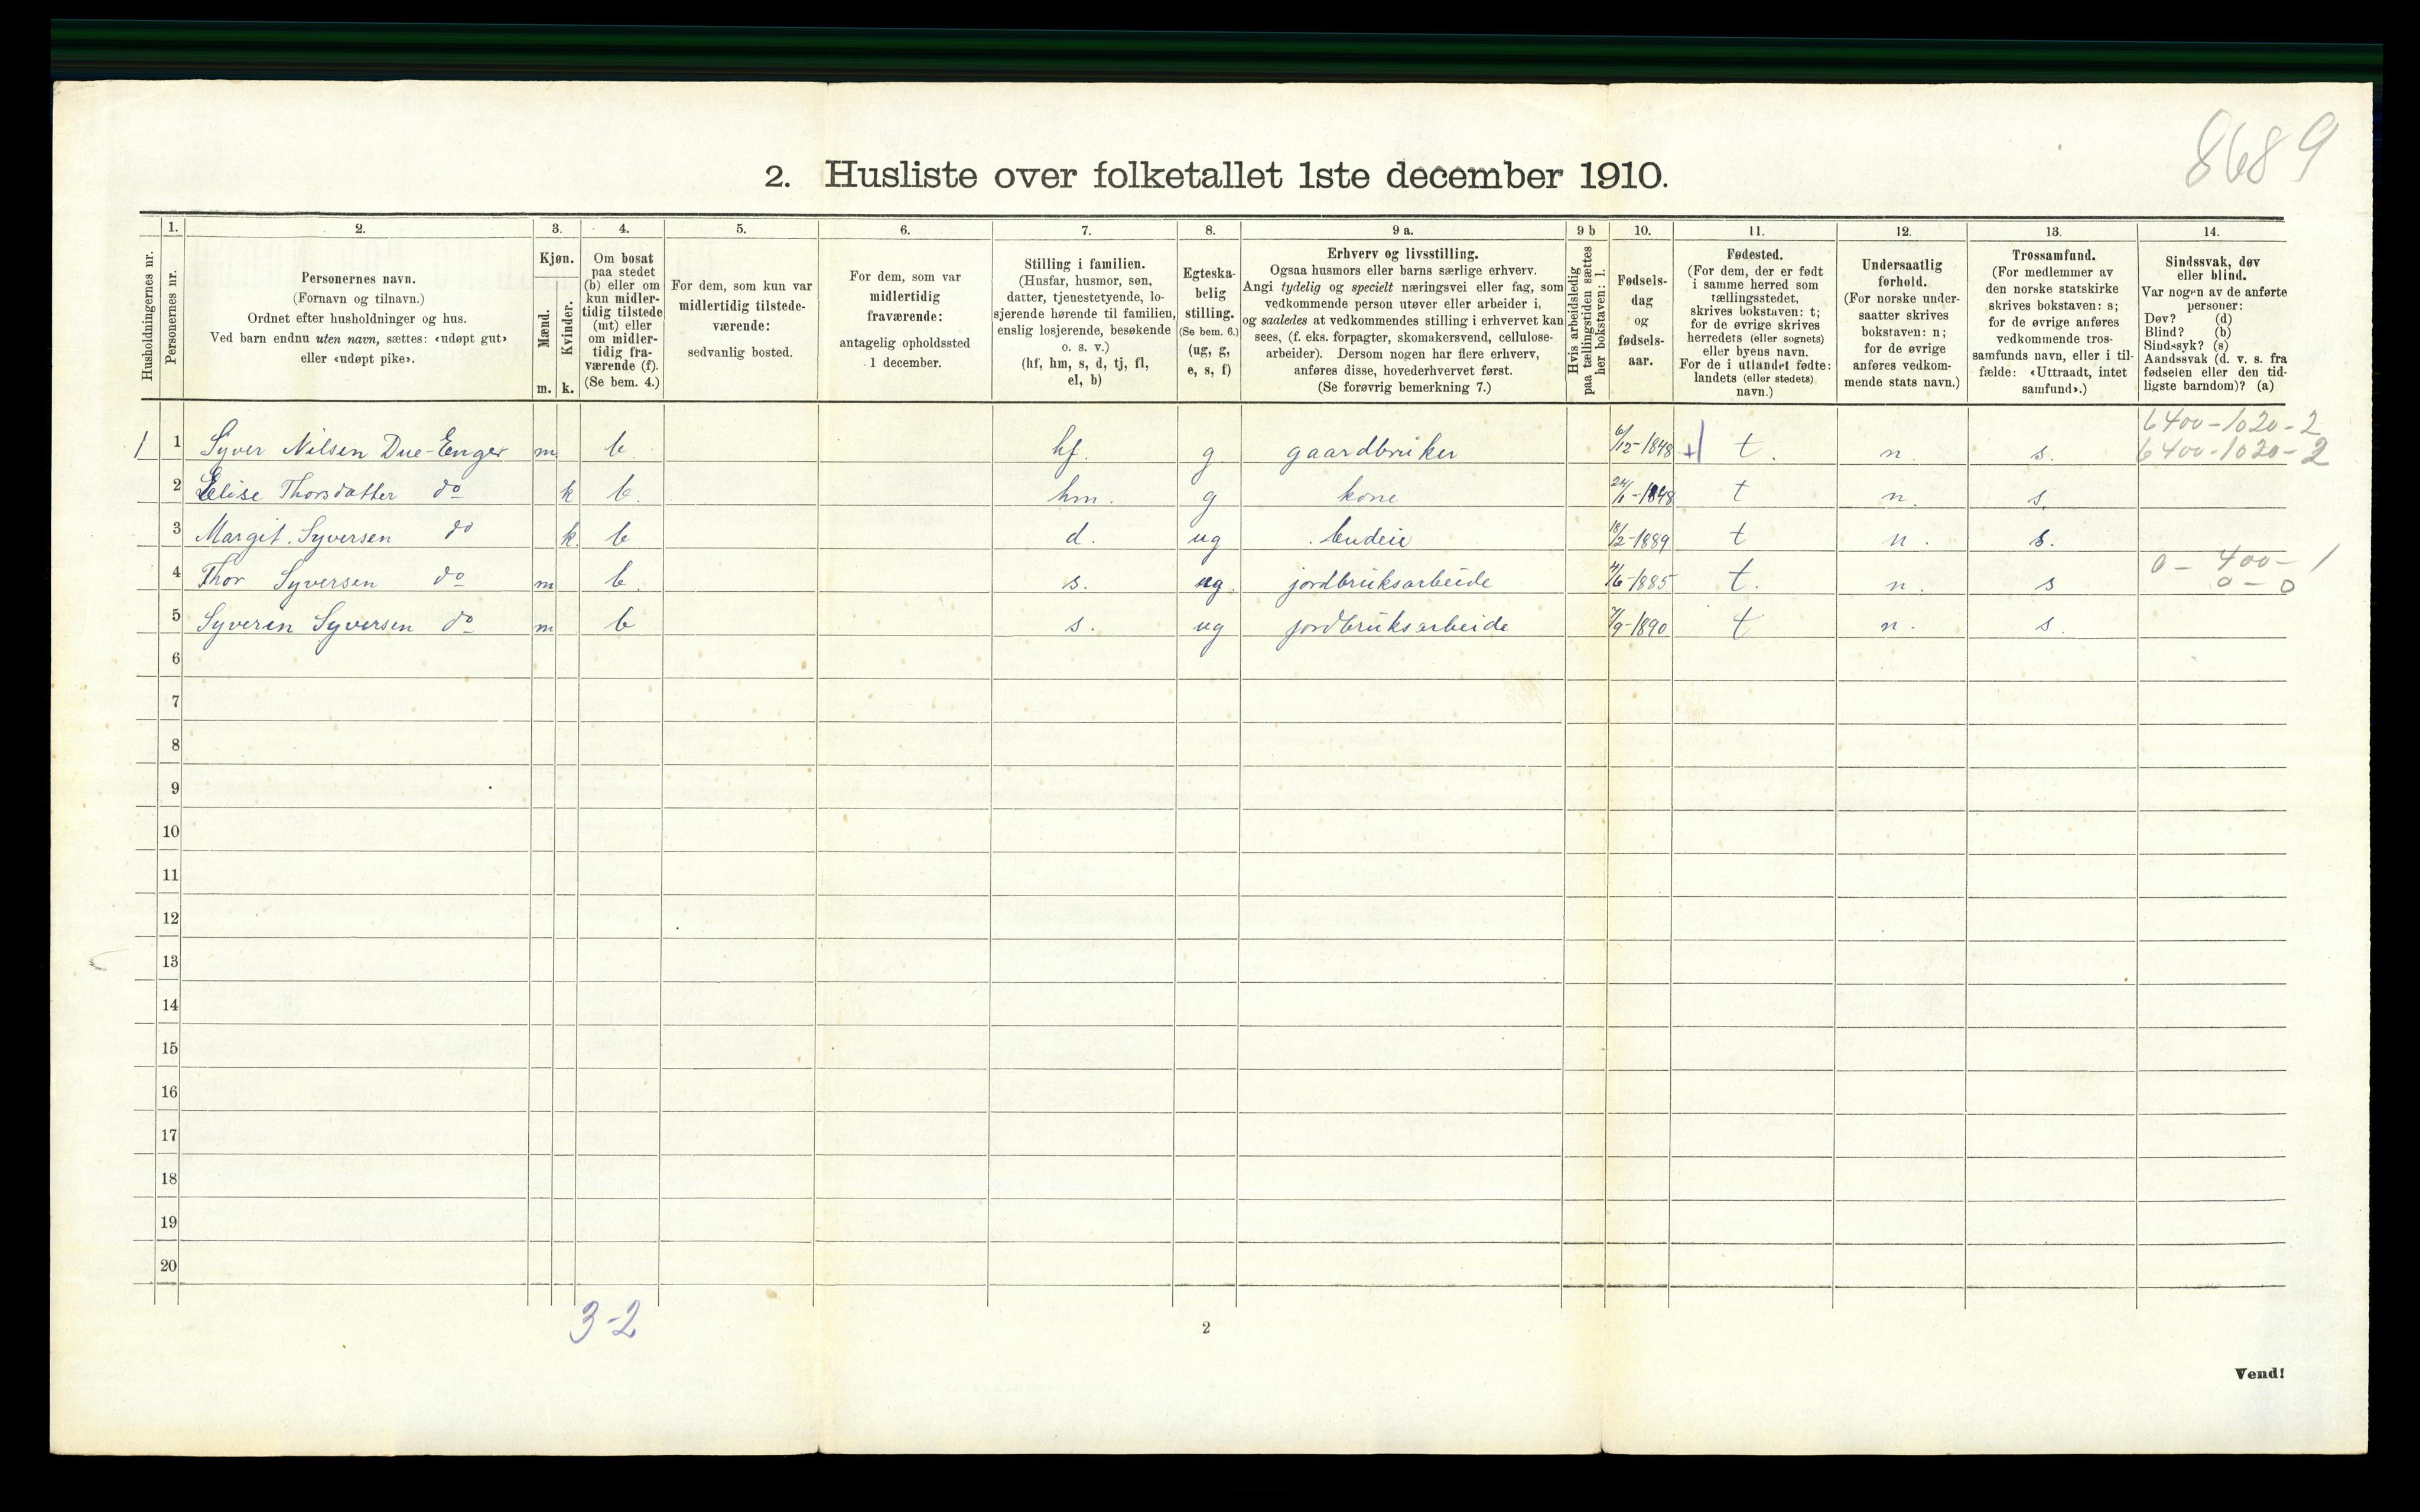 8689
2. Husliste over folketallet 1ste december 1910.
Husholdningernes nr.
1.
Personernes nr.
2.
Personernes navn.
(Fornavn og tilnavn.)
Ordnet efter husholdninger og hus.
Ved barn endnu uten navn, sættes: «udøpt gut»
eller «udøpt pike».
3.
Kjøn.
Mænd.
Kvinder.
m. k.
4.
Om bosat
paa stedet
(b) eller om
kun midler-
tidig tilstede
(mt) eller
om midler-
tidig fra-
værende (f).
(Se bem. 4.)
5.
For dem, som kun var
midlertidig tilstede-
værende:
sedvanlig bosted.
6.
For dem, som var
midlertidig
fraværende:
antagelig opholdssted
1 december.
7.
Stilling i familien.
(Husfar, husmor, søn,
datter, tjenestetyende, lo-
sjerende hørende til familien,
enslig losjerende, besøkende
o. s. v.)
(hf, hm, s, d, tj, fl,
el, b)
8.
Egteska-
belig
stilling.
(Se bem. 6.)
(ug, g,
e, s, f)
9 a.
Erhverv og livsstilling.
Ogsaa husmors eller barns særlige erhverv.
Angi tydelig og specielt næringsvei eller fag, som
vedkommende person utøver eller arbeider i,
og saaledes at vedkommendes stilling i erhvervet kan
sees, (f. eks. forpagter, skomakersvend, cellulose-
arbeider). Dersom nogen har flere erhverv,
anføres disse, hovederhvervet først.
(Se forøvrig bemerkning 7.)
9 b
Hvis arbeidsledig
paa tællingstiden sættes
her bokstaven: l.
10.
Fødsels-
dag
og
fødsels-
aar.
11.
Fødested.
(For dem, der er født
i samme herred som
tællingsstedet,
skrives bokstaven: t;
for de øvrige skrives
herredets (eller sognets)
eller byens navn.
For de i utlandet fødte:
landets (eller stedets)
navn.)
12.
Undersaatlig
forhold.
(For norske under-
saatter skrives
bokstaven: n;
for de øvrige
anføres vedkom-
mende stats navn.)
13.
Trossamfund.
(For medlemmer av
den norske statskirke
skrives bokstaven: s;
for de øvrige anføres
vedkommende tros-
samfunds navn, eller i til-
fælde: «Uttraadt, intet
samfund».)
14.
Sindssvak, døv
eller blind.
Var nogen av de anførte
personer:
Døv? (d)
Blind? (b)
Sindssyk? (s)
Aandssvak (d. v. s. fra
fødselen eller den tid-
ligste barndom)? (a)
6400-1020-2
1 1 Syver Nilsen Due-Enger m b. hf. g gaardbruker 6/12-1848 t. n. s. 6400-1020-2
2 Elise Thorsdatter do k b. hm. g kone 24/1-1848 t n. s.
3 Margit. Syversen do k. b d. ug budeie 18/2-1889 t n. s.
0 - 400 - 1
4 Thor Syversen do m b. s. ug. jordbruksarbeide 4/6-1885 t. n. s 0 - 0
5 Syverin Syversen do m b s. ug jordbruksarbeide 7/9-1890 t n. s.
6
7
8
9
10
11
12
13
14
15
16
17
18
19
20
3-2
2
Vend!